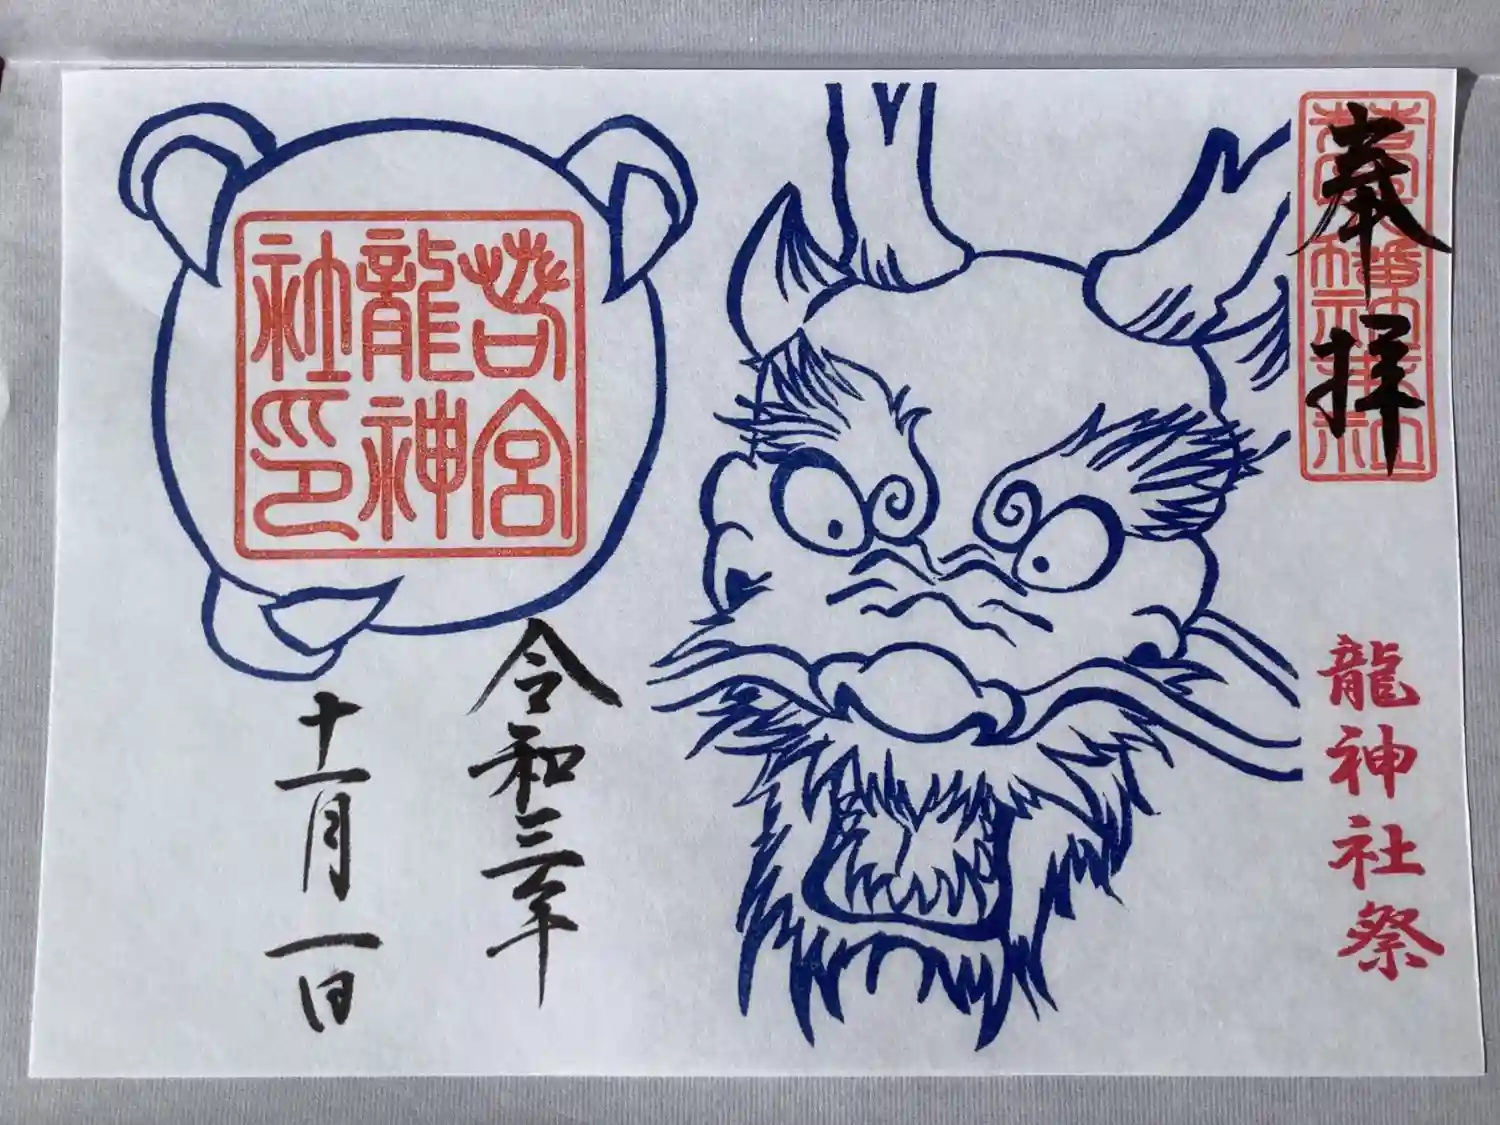 奉拝
龍神社祭
若宮
龍神
社印
令和三年
十一月一日